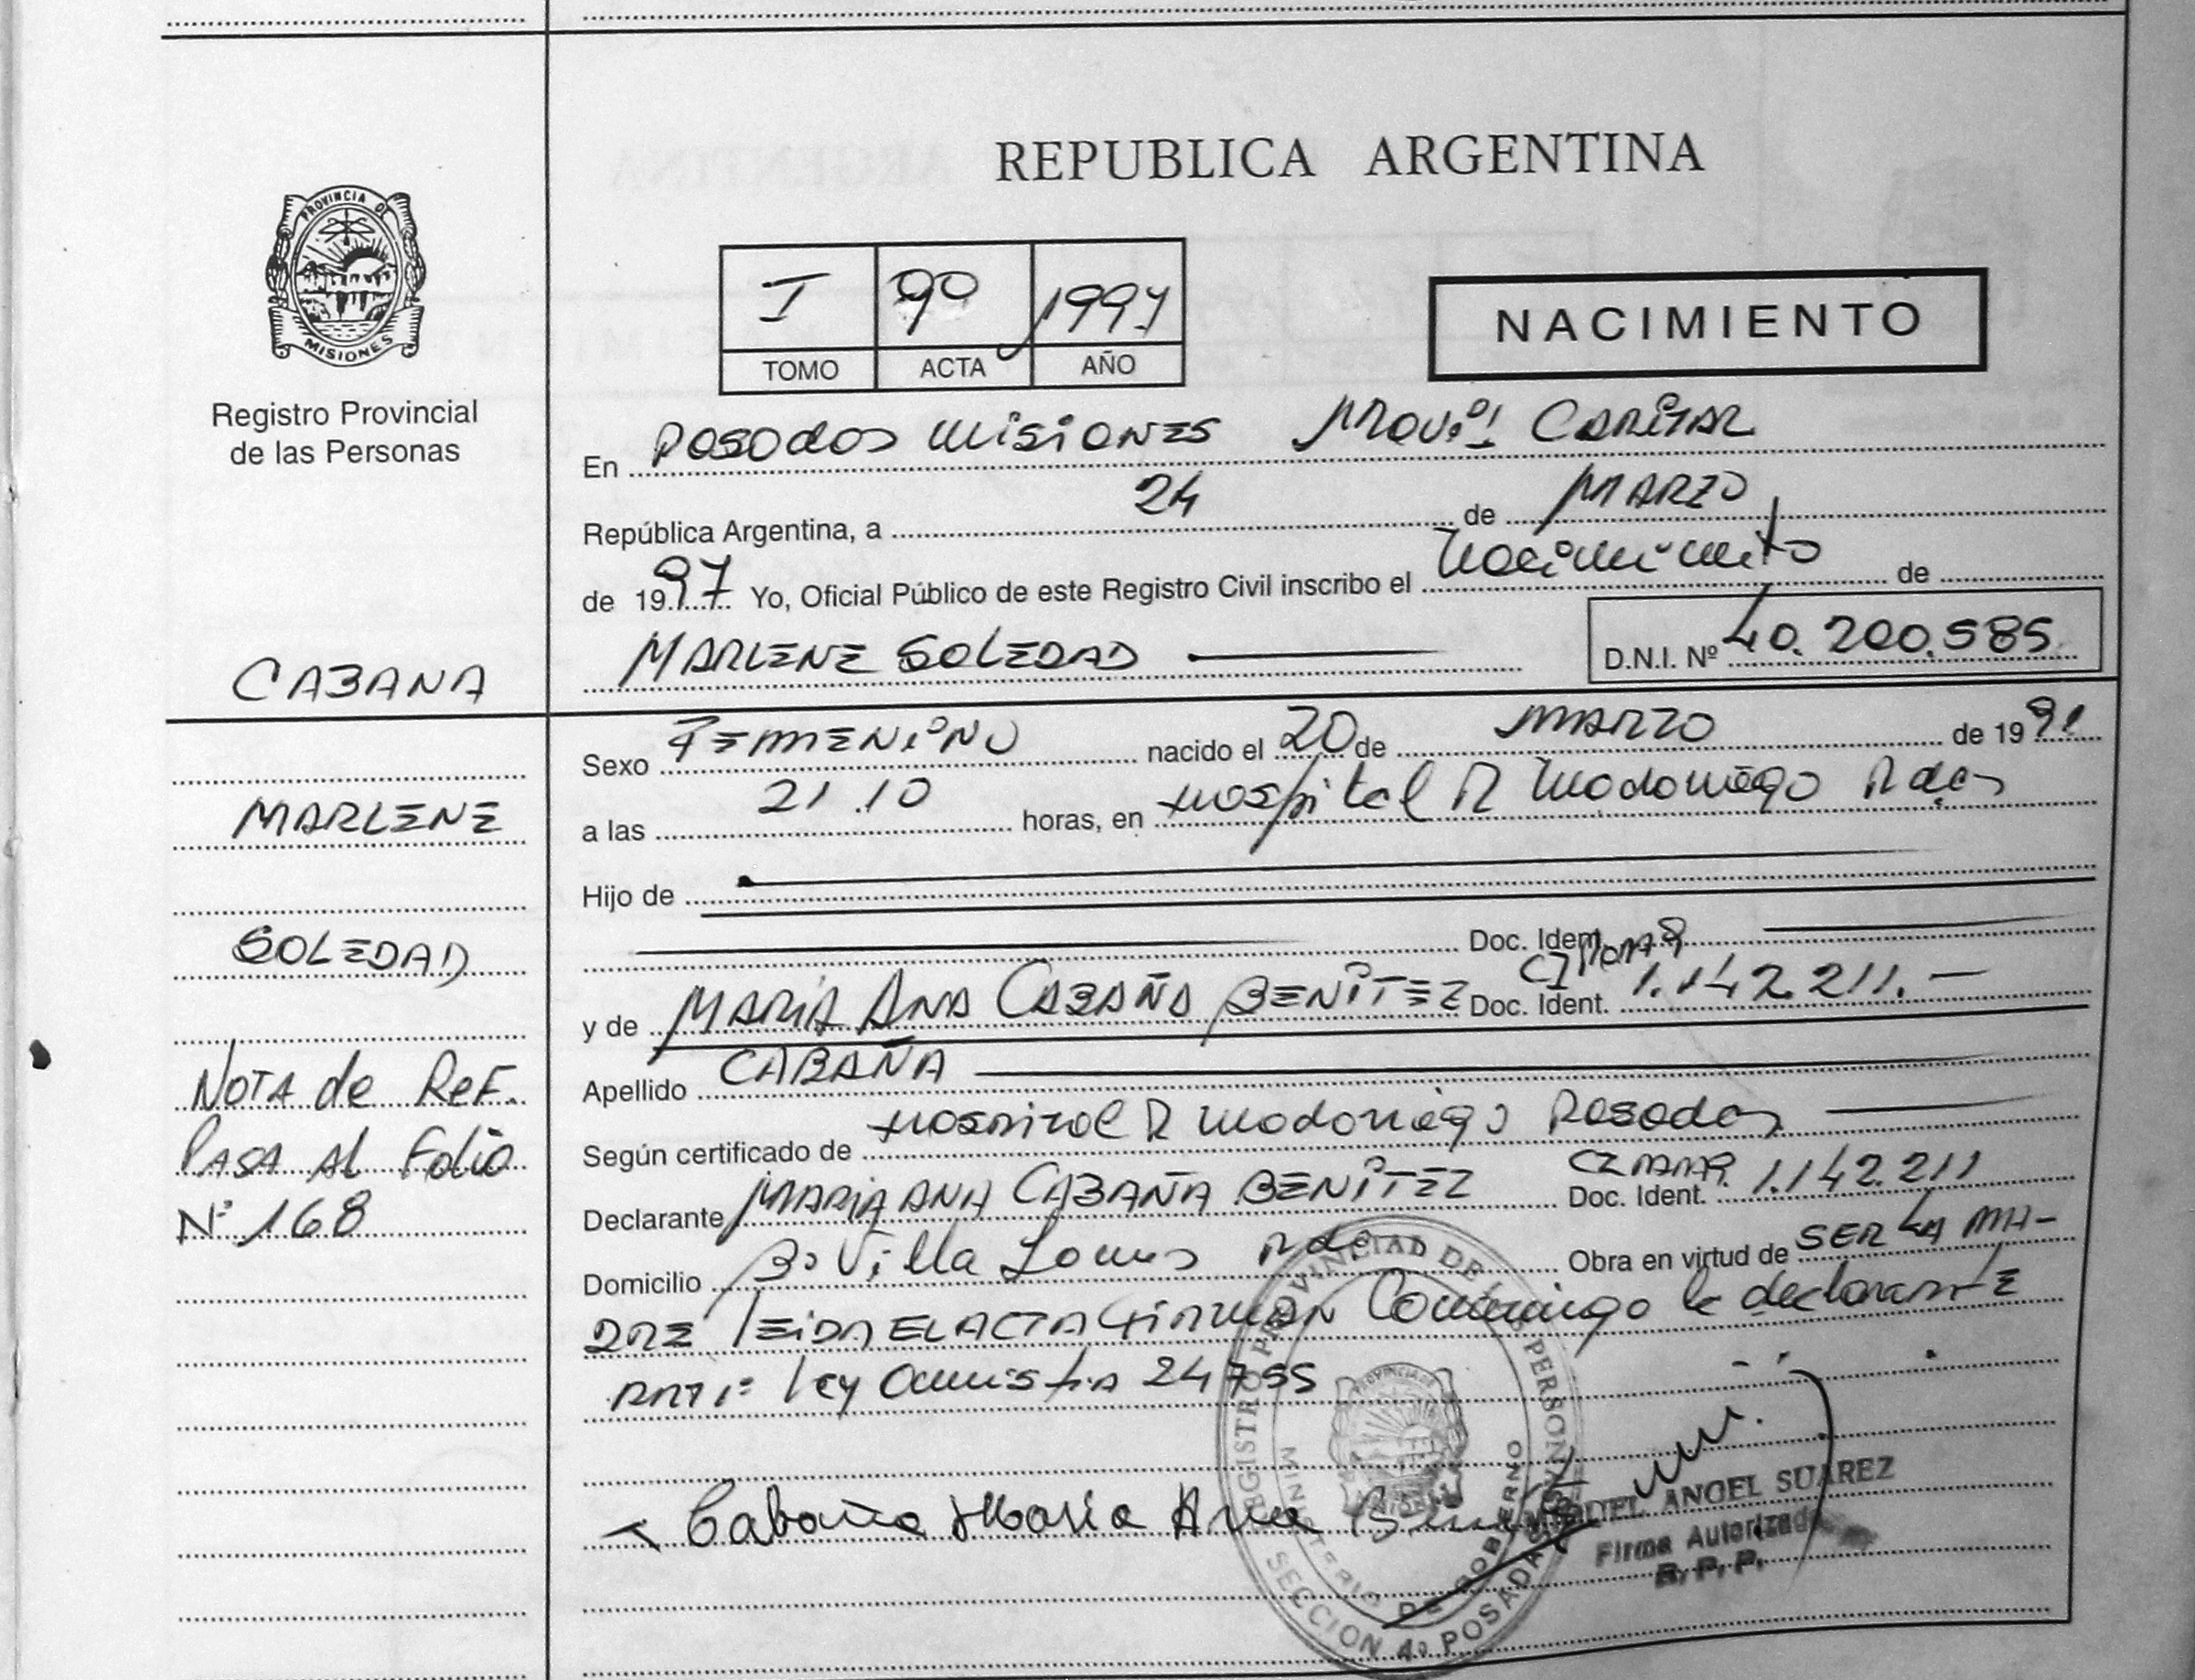 REPUBLICA ARGENTINA
PROVINCIA DE
MISIONES
Registro Provincial
de las Personas
I 90 1997
TOMO ACTA AÑO
NACIMIENTO
En Posadas Misiones Capital
República Argentina, a 24 de MARZO
de 1997 Yo, Oficial Público de este Registro Civil inscribo el Nacimiento de
MARLENE SOLEDAD D.N.I. Nº 40.200.585
CABANA
Sexo FEMENINO nacido el 20 de MARZO de 19
MARLENE
a las 21.10 horas, en Hospital R Madariaga Pdas
Hijo de
SOLEDAD
Doc. Ident.
y de MARIA ANA CABAÑA BENITEZ Doc. Ident. CI 1.142.211.-
Apellido CABAÑA
NOTA de REF.
PASA Al Folio
Nº 168
Según certificado de Hospital R Madariaga Posadas
Declarante MARIA ANA CABAÑA BENITEZ Doc. Ident. 1.142.211
Domicilio Bº Villa Pdas Obra en virtud de SER LA MA-
DRE LEIDA EL ACTA FIRMAN Conmigo la declarante
Ley Amnistia 24755
Cabaña Maria Ana Benitez
REGISTRO PROVINCIAL DE LAS PERSONAS
MINISTERIO DE GOBIERNO
SECCION 4º POSADAS
MIGUEL ANGEL SUAREZ
Firma Autorizada
R. P. P.